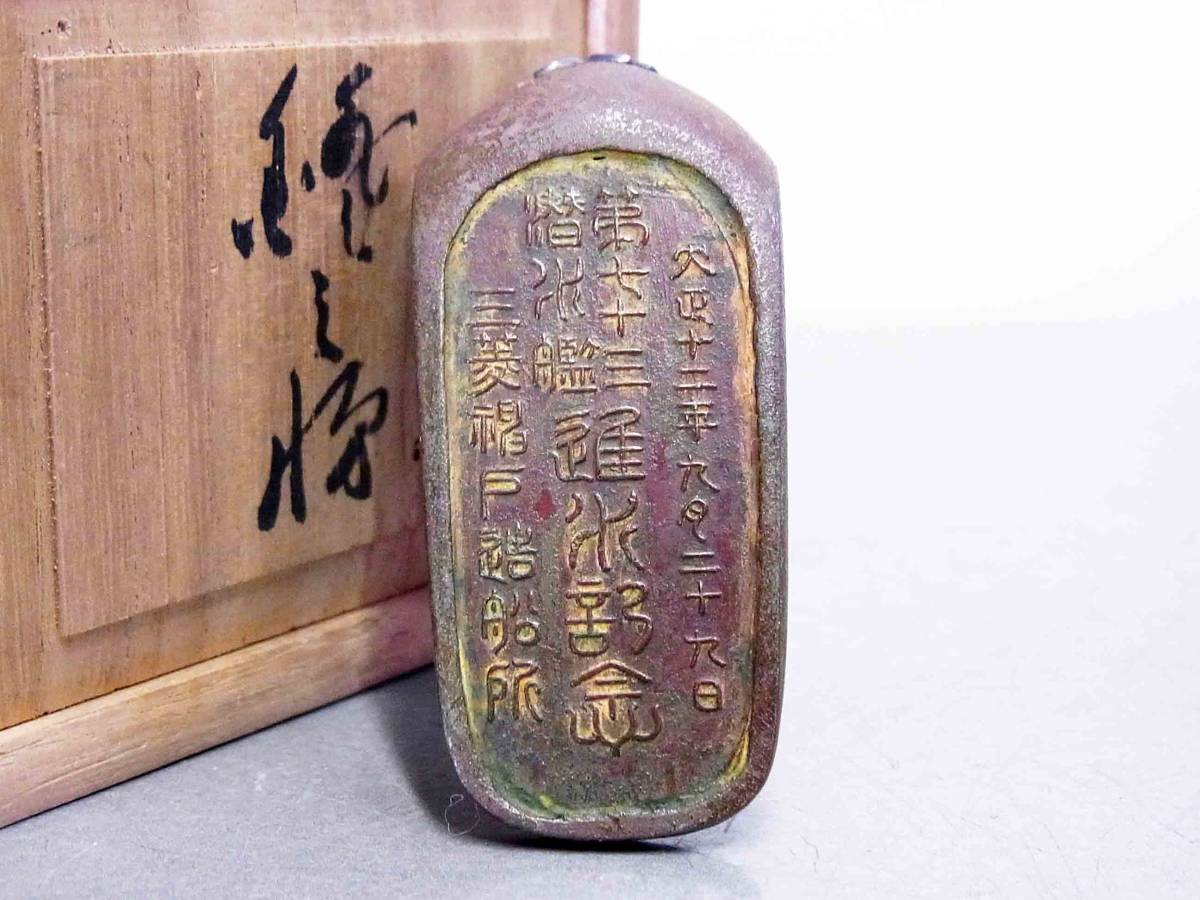 大正十二年九月二十九日
第七十三
潜水艦
進水記念
三菱神戸造船所